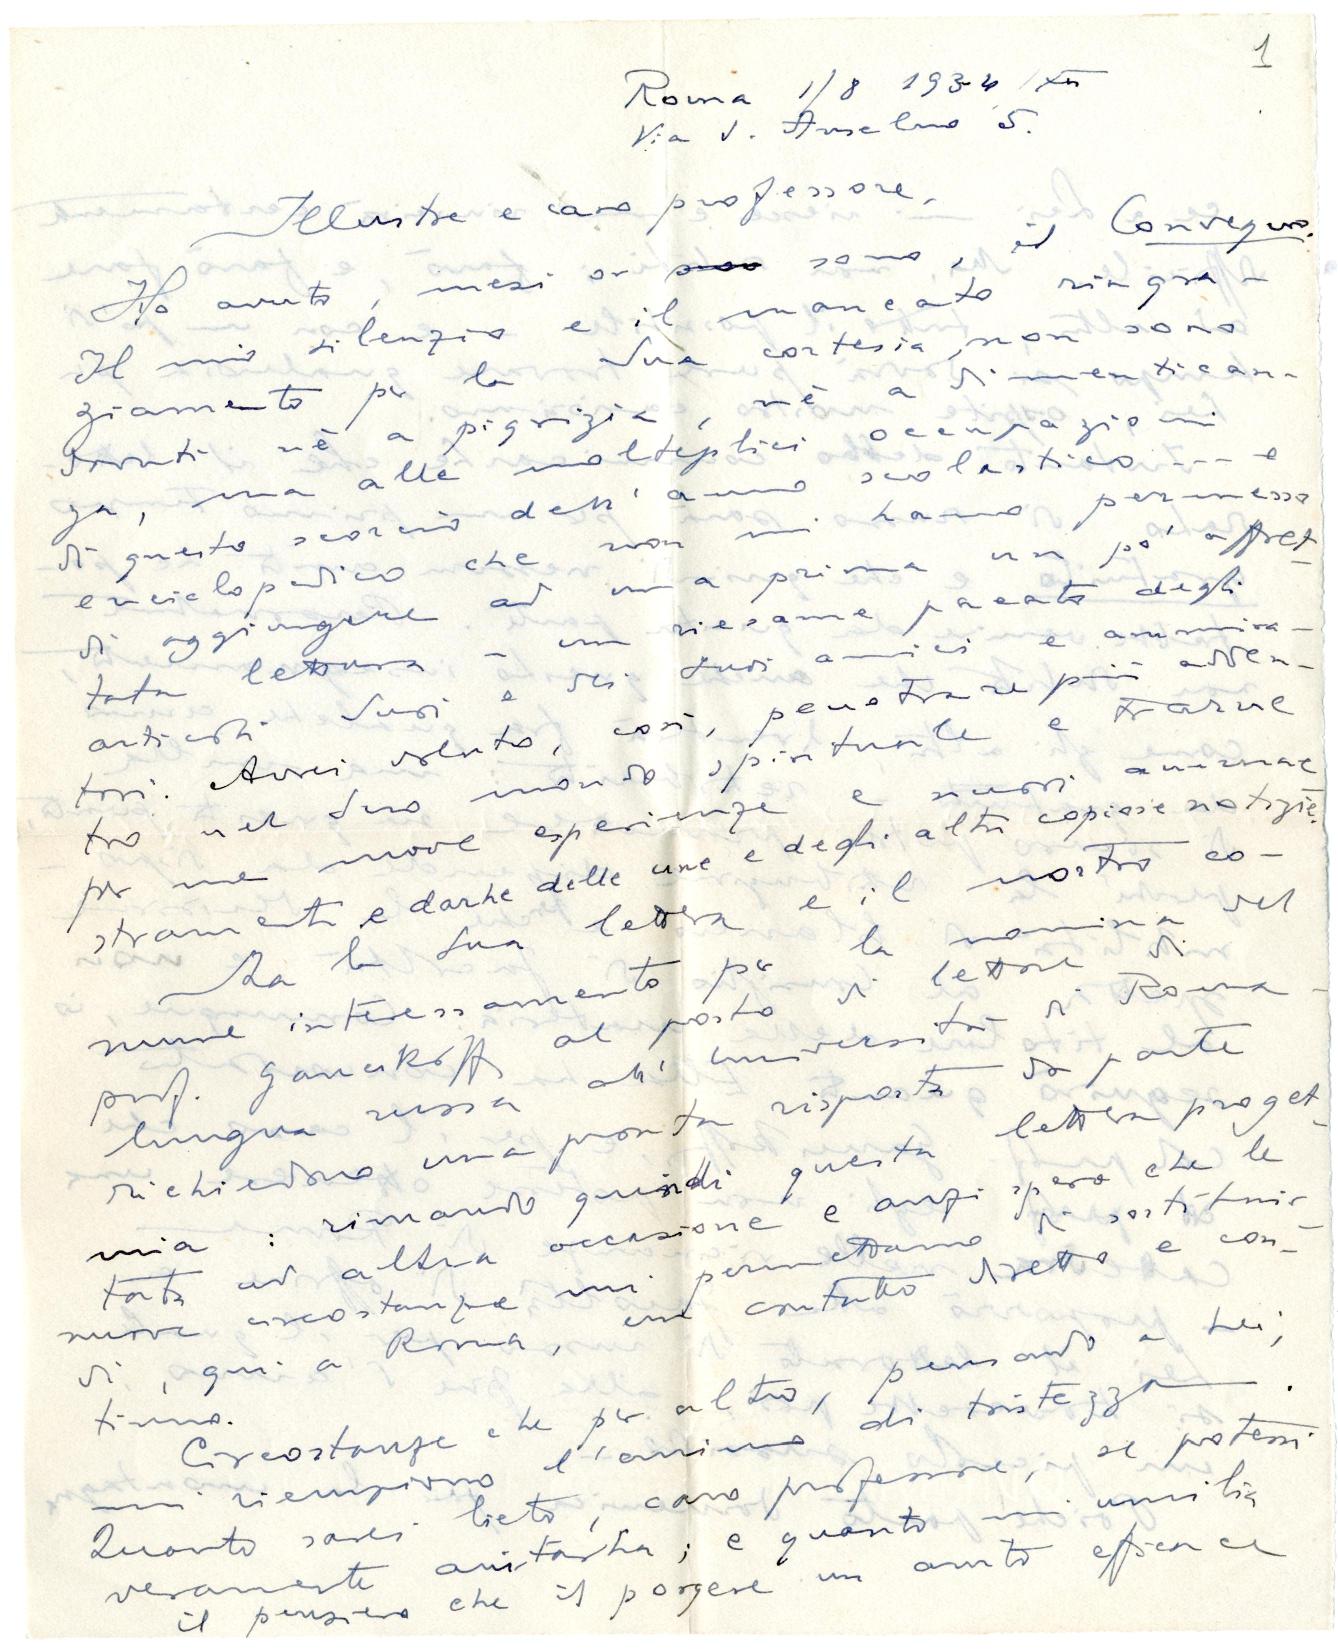 1
Roma 1/8 1934 / XII
Via S. Anselmo 5.
Illustre e caro professore,
Ho avuto, mesi or soo sono, il Convegno.
Il mio silenzio e il mancato ringra-
ziamento per la Sua cortesia, non sono
dovuti nè a pigrizia, nè a dimentican-
za, ma alle molteplici occupazioni
di questo scorcio dell'anno scolastico --- e
enciclopedico che non mi hanno permesso
di aggiungere ad una prima un po' affret-
tata lettura - un riesame pacato degli
articoli Suoi e dei Suoi amici e ammira-
tori. Avrei voluto, così, penetrare più adden-
tro nel Suo mondo spirituale e trarne
per me nuove esperienze e nuovi ammae
stramenti e darLe delle une e degli altri copiose notizie.
Ma la Sua lettera e il nostro co-
mune interessamento per la nomina del
prof. Gancikoff al posto di lettore di
lingua russa all'università di Roma -
richiedono una pronta risposta da parte
mia : rimando quindi questa lettera proget-
tata ad altra occasione e anzi spero che le
nuove circostanze mi permettano di sostituir
di, qui a Roma, un contatto diretto e con-
tinuo.
Circostanze che per altro, pensando a Lei,
mi riempiono l'animo di tristezza.
Quanto sarei lieto, caro professore, se potessi
veramente aiutarLa; e quanto mi umilia
il pensiero che il porgere un aiuto efficace